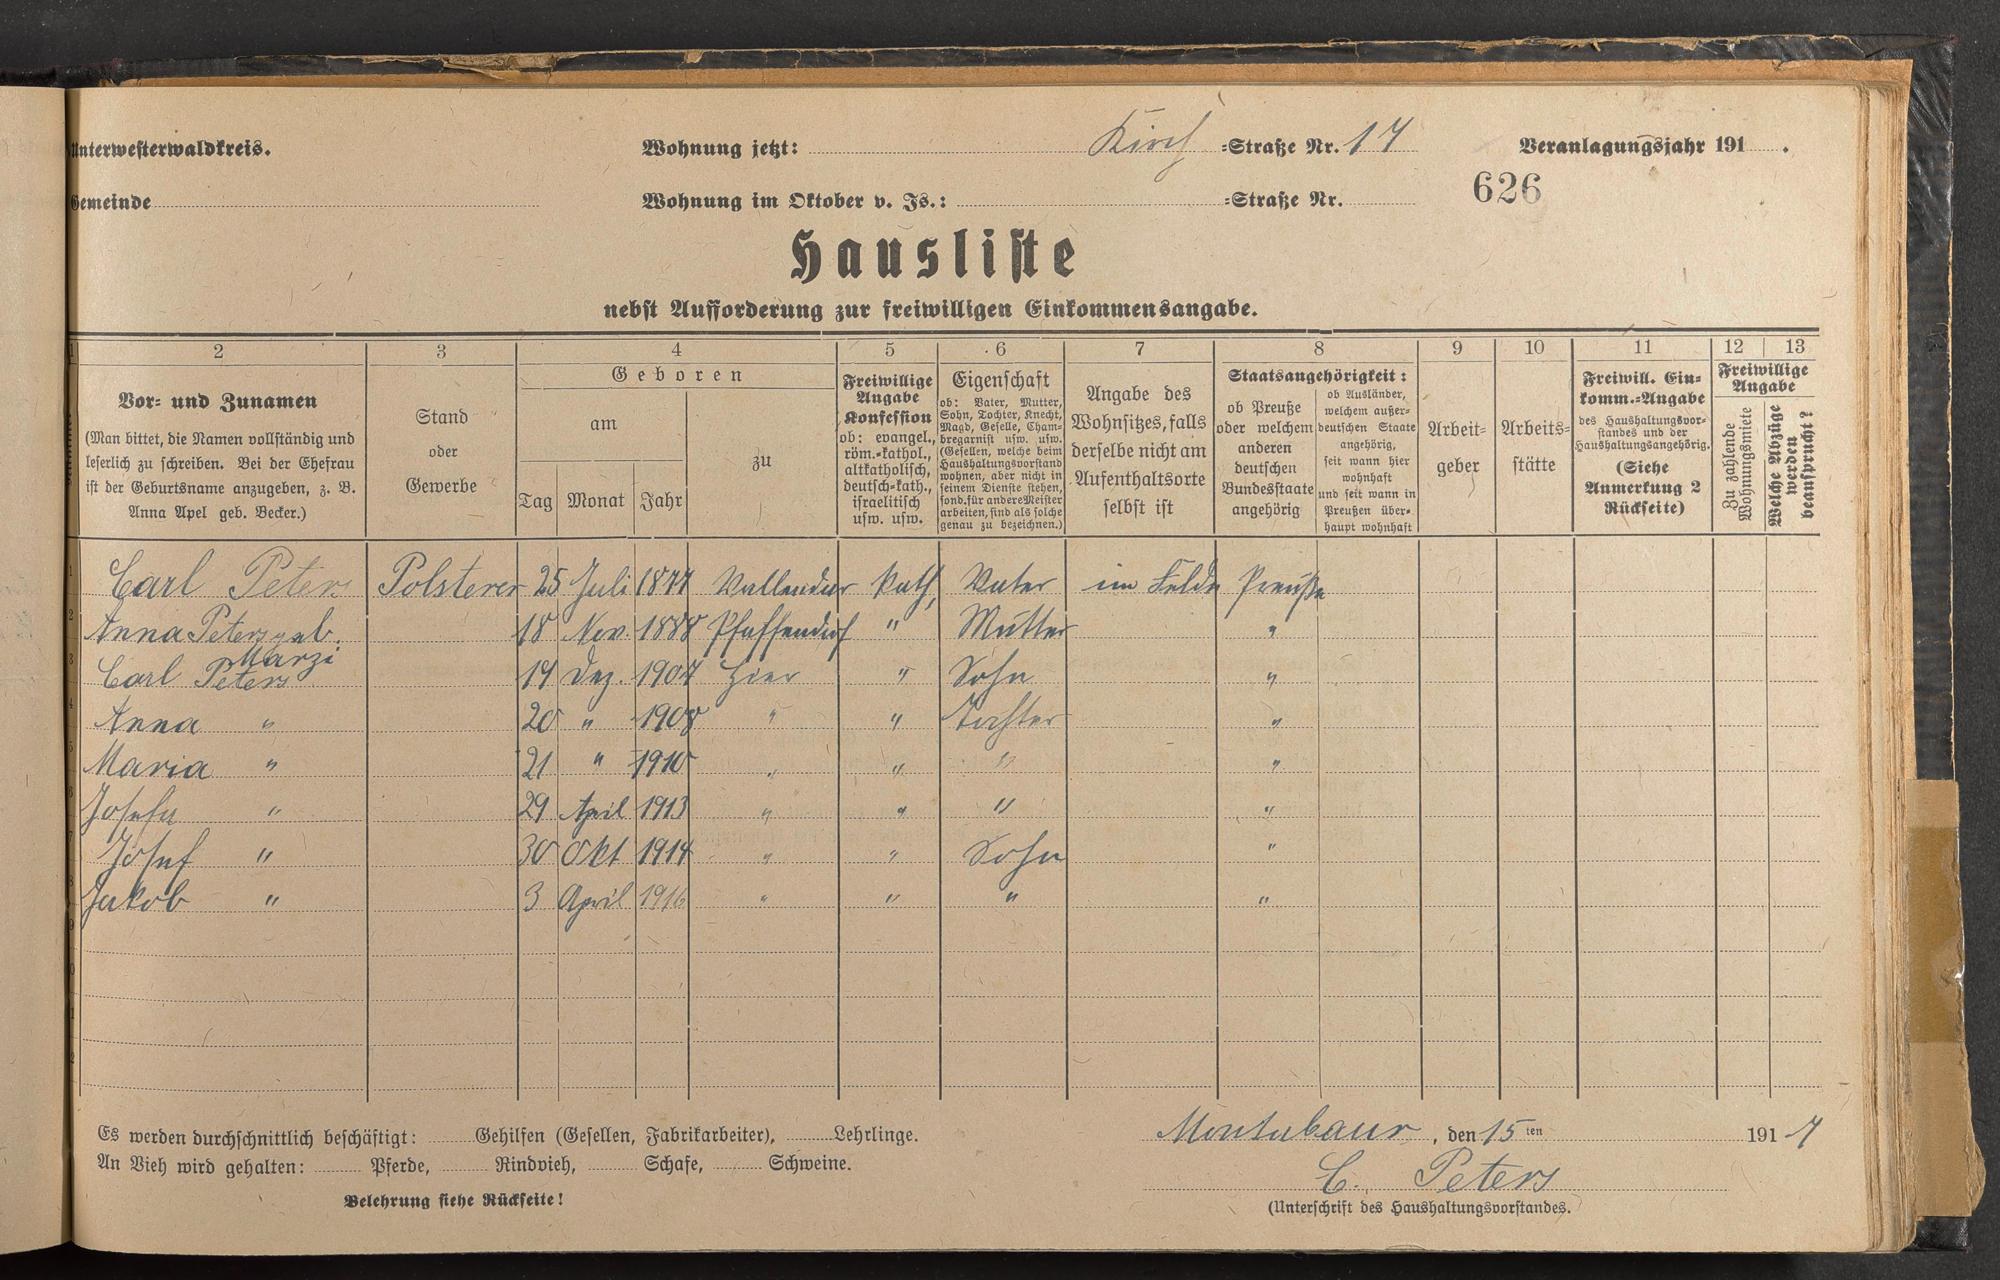 Unterwesterwaldkreis. Wohnung jetzt: Kirch =Straße Nr. 17 Veranlagungsjahr 191 .
Gemeinde Wohnung im Oktober v. Js.: =Straße Nr. 626
Hausliste
nebst Aufforderung zur freiwilligen Einkommensangabe.
1 2 3 4 5 6 7 8 9 10 11 12 13
Vor- und Zunamen
(Man bittet, die Namen vollständig und
leserlich zu schreiben. Bei der Ehefrau
ist der Geburtsname anzugeben, z. B.
Anna Apel geb. Becker.)
Stand
oder
Gewerbe
Geboren
am
Tag Monat Jahr
zu
Freiwillige
Angabe
Konfession
ob: evangel.,
röm.-kathol.,
altkatholisch,
deutsch-kath.,
israelitisch
usw. usw.
Eigenschaft
ob: Vater, Mutter,
Sohn, Tochter, Knecht,
Magd, Geselle, Cham-
bregarnist usw. usw.
(Gesellen, welche beim
Haushaltungsvorstand
wohnen, aber nicht in
seinem Dienste stehen,
sond. für andere Meister
arbeiten, sind als solche
genau zu bezeichnen.)
Angabe des
Wohnsitzes, falls
derselbe nicht am
Aufenthaltsorte
selbst ist
Staatsangehörigkeit:
ob Preuße
oder welchem
anderen
deutschen
Bundesstaate
angehörig
ob Ausländer,
welchem außer-
deutschen Staate
angehörig,
seit wann hier
wohnhaft
und seit wann in
Preußen über-
haupt wohnhaft
Arbeit-
geber
Arbeits-
stätte
Freiwill. Ein-
komm.-Angabe
des Haushaltungsvor-
standes und der
Haushaltungsangehörig.
(Siehe
Anmerkung 2
Rückseite)
Freiwillige
Angabe
Zu zahlende
Wohnungsmiete
Welche Abzüge
werden
beansprucht?
1 Carl Peters Polsterer 25 Juli 1877 Vallendar kath. Vater im Felde Preuße
2 Anna Peters geb. 18 Nov. 1888 Pfaffendorf " Mutter "
Marzi
3 Carl Peters 19 Dez. 1907 Hier " Sohn "
4 Anna " 20 " 1908 " " Tochter "
5 Maria " 21 " 1910 " " " "
6 Josefa " 29 April 1913 " " " "
7 Josef " 30 Okt 1914 " " Sohn "
8 Jakob " 3 April 1916 " " " "
9
0
1
2
Es werden durchschnittlich beschäftigt: Gehilfen (Gesellen, Fabrikarbeiter), Lehrlinge.
Montabaur, den 15ten 1917
An Vieh wird gehalten: Pferde, Rindvieh, Schafe, Schweine.
C. Peters
Belehrung siehe Rückseite!
(Unterschrift des Haushaltungsvorstandes.